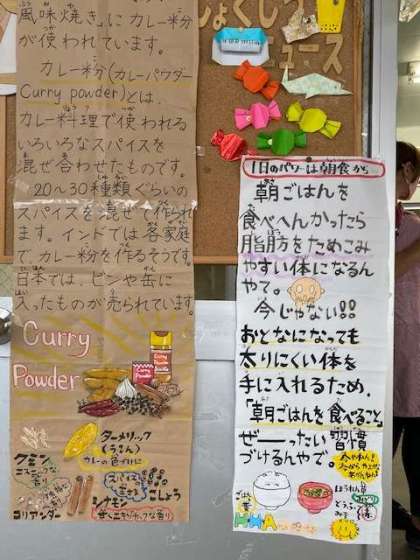 しょくしつ
ニュース
風味焼き」にカレー粉
が使われています。
カレー粉(カレーパウダー
Curry powder)とは、
カレー料理で使われる
いろいろなスパイスを
混ぜ合わせたものです。
20〜30種類ぐらいの
スパイスを混ぜて作られ
ます。インドでは各家庭
で、カレー粉を作るそうです。
日本では、ビンや缶に
入ったものが売られています。
Curry
Powder
ターメリック
(うこん)
カレーの色づけに
クミン
スパイスの
こしょう
シナモン
コリアンダー
1日のパワーは朝食から
朝ごはんを
食べへんかったら
脂肪をためこみ
やすい体になるん
やで。
今じゃない!!
おとなになっても
太りにくい体を
手に入れるため、
「朝ごはんを食べること」
ぜーーったい習慣
づけるんやで。
ごはん
ほうれん草
とうふ